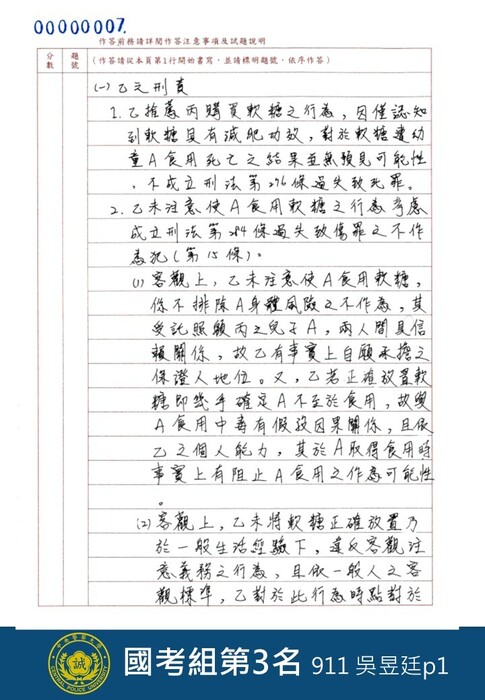 00000007
作答前務請詳閱作答注意事項及試題說明
分數
題號
(作答請從本頁第1行開始書寫,並請標明題號,依序作答)
(一)乙之刑責
1. 乙推薦丙購買軟糖之行為,因僅認知
到軟糖具有減肥功放,對於軟糖遭幼
童A食用死亡之結果並無預見可能性
,不成立刑法第276條過失致死罪。
2. 乙未注意使A食用軟糖之行為考慮
成立刑法第284條過失致傷罪之不作
為犯(第15條)。
(1) 客觀上,乙未注意使A食用軟糖,
係不排除A身體風險之不作為,其
受託照顧丙之兒子A,兩人間具信
賴關係,故乙有事實上自願承擔之
保證人地位。又,乙若正確放置軟
糖即幾乎確定A不至於食用,故與
A食用中毒有假設因果關係,且依
乙之個人能力,其於A取得食用時
事實上有阻止A食用之作為可能性
。
(2) 客觀上,乙未將軟糖正確放置乃
於一般生活經驗下,違反客觀注
意義務之行為,且依一般人之客
觀標準,乙對於此行為時點對於
中央警察大學
誠
CENTRAL POLICE UNIVERSITY
國考組第3名 911 吳昱廷p1